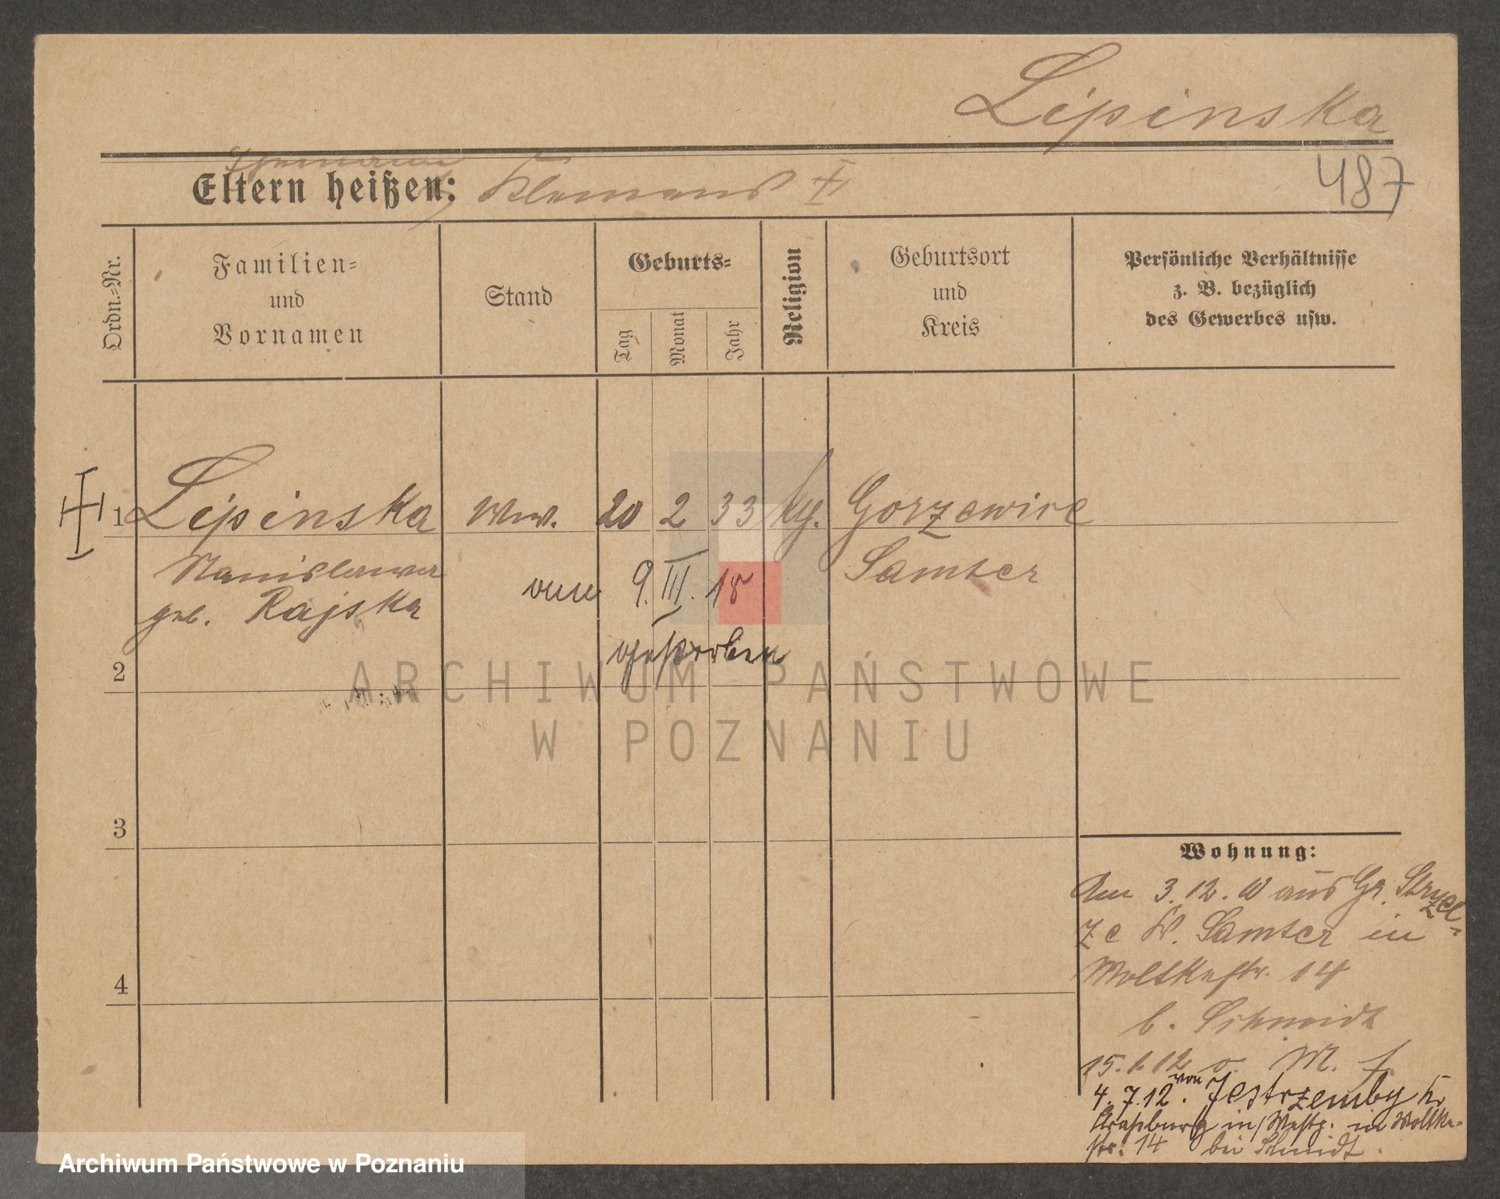 Lipinska
487
Ehemann
Eltern heißen: Klemens †
Ordn.=Nr.
Familien=
und
Vornamen
Stand
Geburts=
Tag
Monat
Jahr
Religion
Geburtsort
und
Kreis
Persönliche Verhältnisse
z. B. bezüglich
des Gewerbes usw.
1 Lipinska Ww. 20 2 33 kg. Gorzewice
Stanislawa Samter
geb. Rajska
am 9. III. 18
gestorben
2
3
4
Wohnung:
Am 3.12.10 aus Gr. Strzel-
ze K. Samter in
Moltkestr. 14
b. Schmidt
15. 1. 12 o. M. f.
4.7.12. von Jestrzemby Kr
Strasburg in/Westp. in Moltke-
str. 14 bei Schmidt.
ARCHIWUM PAŃSTWOWE
W POZNANIU
Archiwum Państwowe w Poznaniu